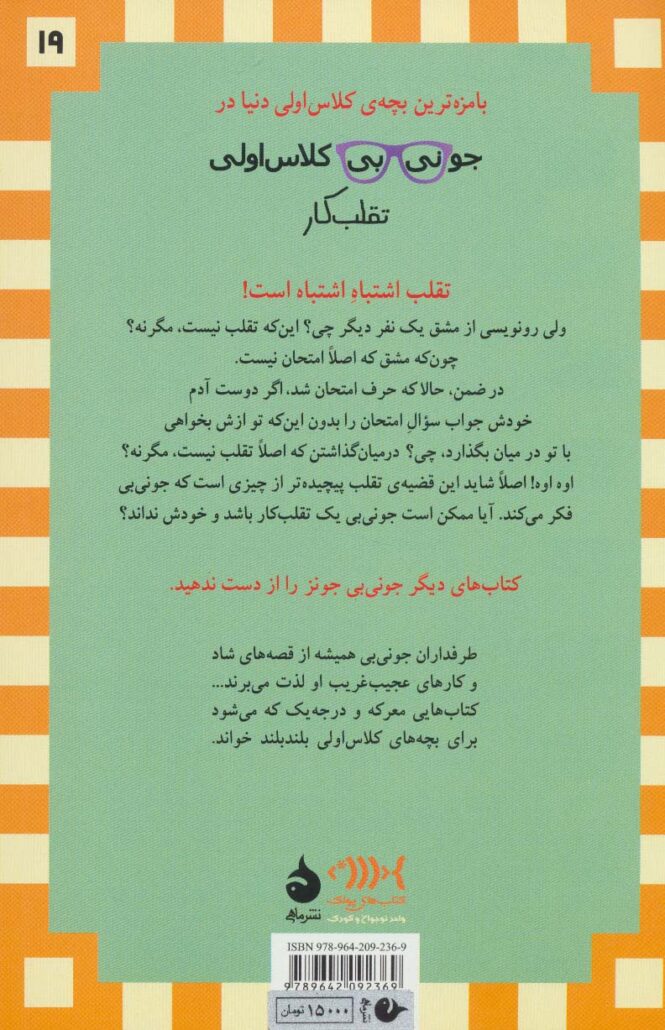 ۱۹
بامزه‌ترین بچه‌ی کلاس‌اولی دنیا در
جونی بی کلاس‌اولی
تقلب‌کار
تقلب اشتباهِ اشتباه است!
ولی رونویسی از مشق یک نفر دیگر چی؟ این‌که تقلب نیست، مگرنه؟
چون‌که مشق که اصلاً امتحان نیست.
در ضمن، حالا که حرف امتحان شد، اگر دوست آدم
خودش جواب سؤالِ امتحان را بدون این‌که تو ازش بخواهی
با تو در میان بگذارد، چی؟ درمیان‌گذاشتن که اصلاً تقلب نیست، مگرنه؟
اوه اوه! اصلاً شاید این قضیه‌ی تقلب پیچیده‌تر از چیزی است که جونی‌بی
فکر می‌کند. آیا ممکن است جونی‌بی یک تقلب‌کار باشد و خودش نداند؟
کتاب‌های دیگر جونی‌بی جونز را از دست ندهید.
طرفداران جونی‌بی همیشه از قصه‌های شاد
و کارهای عجیب‌غریب او لذت می‌برند...
کتاب‌هایی معرکه و درجه‌یک که می‌شود
برای بچه‌های کلاس‌اولی بلندبلند خواند.
کتاب‌های پولک
واحد نوجوان و کودک
نشرماهی
ISBN 978-964-209-236-9
9789642092369
۱۵۰۰۰ تومان
نشرماهی